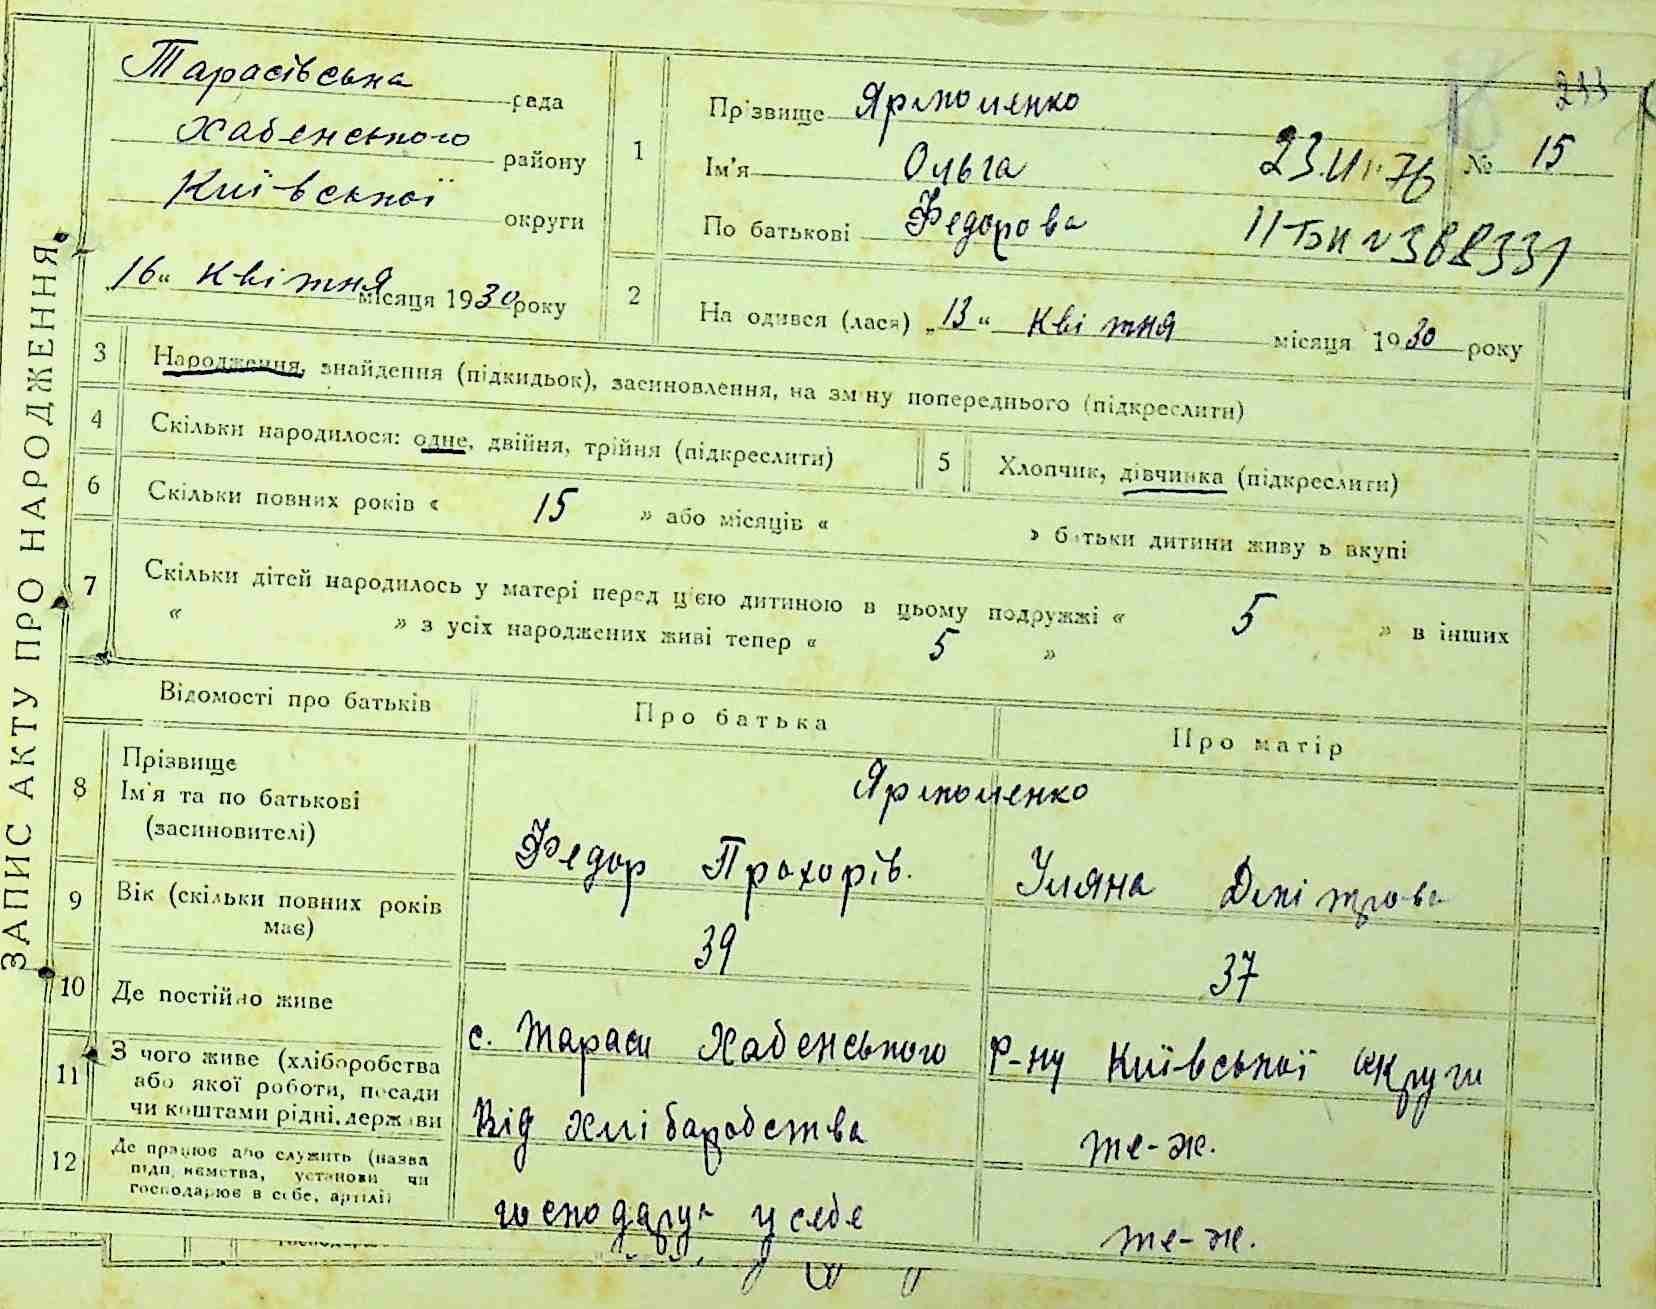 ЗАПИС АКТУ ПРО НАРОДЖЕННЯ.
Тарасівська рада
Хабенського району
Київської округи
„16“ квітня місяця 1930 року
1
Прізвище Ярмоленко
Ім'я Ольга
По батькові Федорова
211
№ 15
23.VII.76
II-БК № 388331
2
На одився (лася) „13“ квітня місяця 1930 року
3 Народження, знайдення (підкидьок), засиновлення, на зміну попереднього (підкреслити)
4 Скільки народилося: одне, двійня, трійня (підкреслити)
5 Хлопчик, дівчинка (підкреслити)
6 Скільки повних років « 15 » або місяців « » батьки дитини живу ь вкупі
7 Скільки дітей народилось у матері перед ц'єю дитиною в цьому подружжі « 5 » в інших
« » з усіх народжених живі тепер « 5 »
Відомості про батьків
Про батька
Про матір
8 Прізвище
Ім'я та по батькові
(засиновителі)
Ярмоленко
Федор Прохорів.
Уляна Дмітрова
9 Вік (скільки повних років
має)
39
37
10 Де постійно живе
с. Тараси Хабенського р-ну Київської округи
11 З чого живе (хліборобства
або якої роботи, посади
чи коштами рідні, держави
Від хліборобства
те-ж.
12 Де працює або служить (назва
підприємства, установи чи
господарює в себе, артілі)
господарує у себе
те-ж.